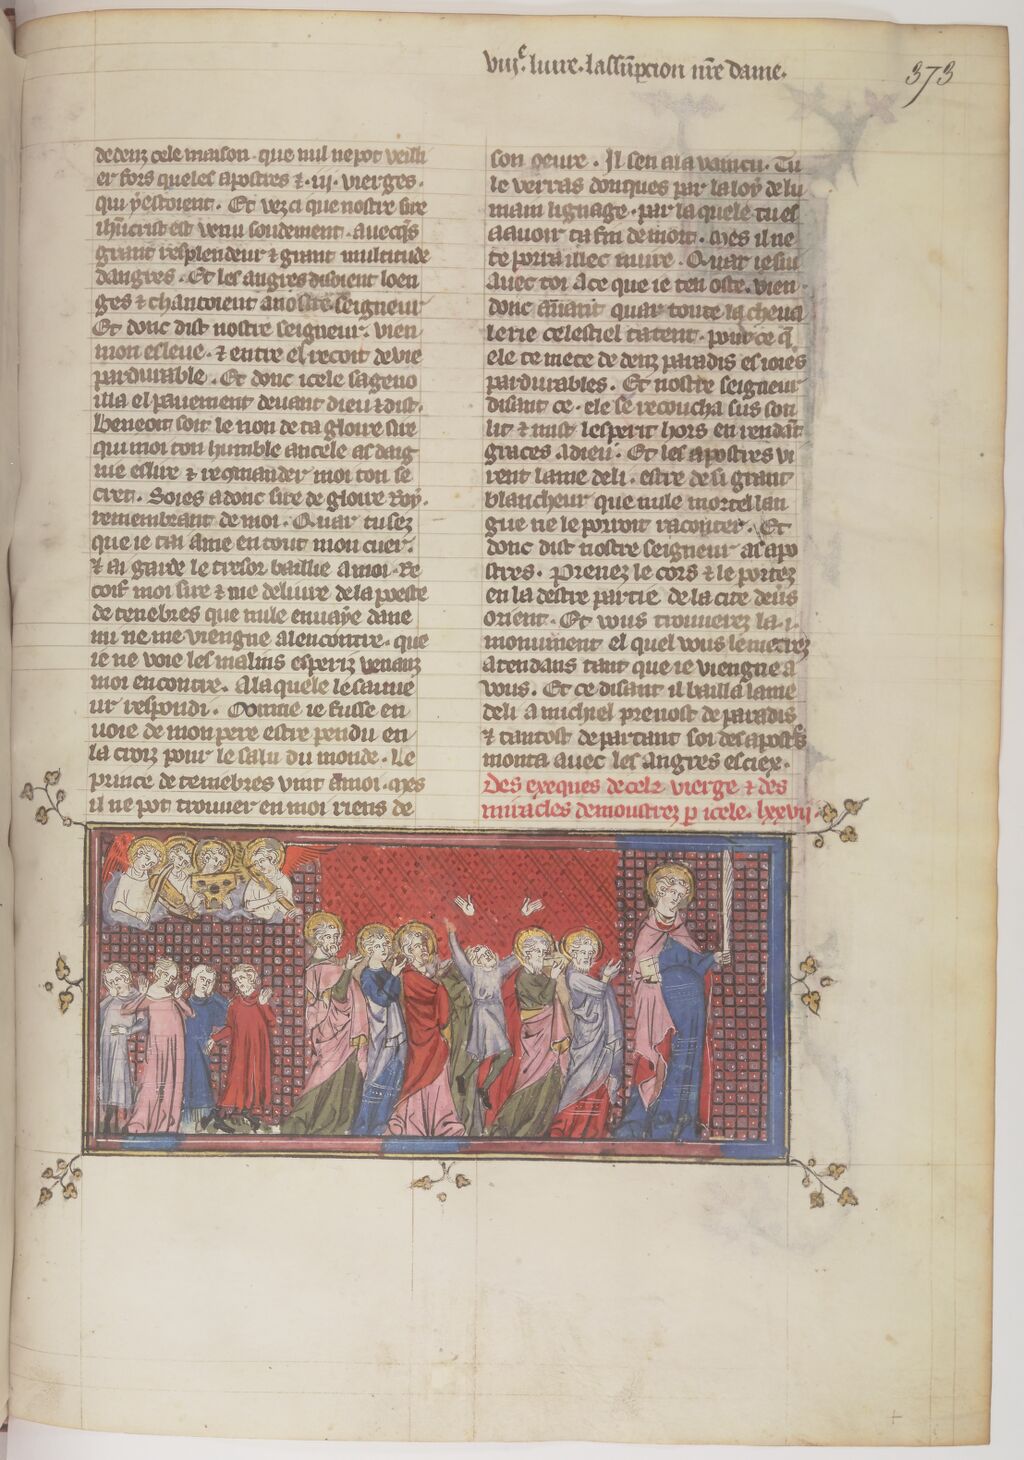 viij.e liure. lassūpcion nr̄e dame.
373
dedenz cele maison. que nul ne pot veilli
er fors que les apostres ⁊ .iij. vierges.
qui y estoient. Et vez ci que nostre sire
ih̄ucrist est venu soudement. auecq̄s
grant resplendeur ⁊ grant multitude
dangres. Et les angres disoient loen
ges ⁊ chantoient a nostre seigneur
Et donc dist nostre seigneur. vien
mon esleue. ⁊ entre el recoit de vie
pardurable. Et donc icele sageno
illa el pauement deuant dieu ⁊ dist.
Beneoit soit le non de ta gloire sire
qui moi ton humble ancele as daig
nie eslire ⁊ recmander moi ton se
cret. Soies adonc sire de gloire Roy.
remembrant de moi. Quar tu sez
que ie tai ame en tout mon cuer.
⁊ ai garde le tresor baillie a moi. Re
coif moi sire ⁊ me deliure de la poeste
de tenebres que nule enuaÿe dane
mi ne me viengne alencontre. que
ie ne voie les malins esperiz venanz
moi encontre. A la quele le sauue
ur respondi. Comme ie fusse en
uoie de mon pere estre pendu en
la croiz pour le salu du monde. Le
prince de tenebres vint a moi. mes
il ne pot trouuer en moi riens de
son oeure. Il sen ala vaincu. Tu
le verras donques par la loÿ de lu
main lignage. par la quele tu es
a auoir ta fin de mort. Mes il ne
te porra illec nuire. Quar ie sui
auec toi a ce que ie ten oste. vien
donc auant quar toute la cheua
lerie celestiel tatent. pour ce q̄
ele te mete de denz paradis es ioies
pardurables. Et nostre seigneur
disant ce. ele se recoucha sus son
lit ⁊ mist lesperit hors en rendāt
graces a dieu. Et les apostres vi
rent lame de li. estre de si grant
blancheur que nule mortel lan
gue ne le porroit raconter. Et
donc dist nostre seigneur as apo
stres. Prenez le cors ⁊ le portez
en la destre partie de la cite deuūs
orient. Et vous trouuerez la .i.
monument el quel vous le metrez
atendans tant que ie viengne a
vous. Et ce disant il bailla lame
de li a michiel preuost de paradis
⁊ tantost departant soi des apostr̄s
monta auec les angres es ciex.
Des exeques de cele vierge ⁊ des
miracles demoustrez p̱ icele. lxxvij.